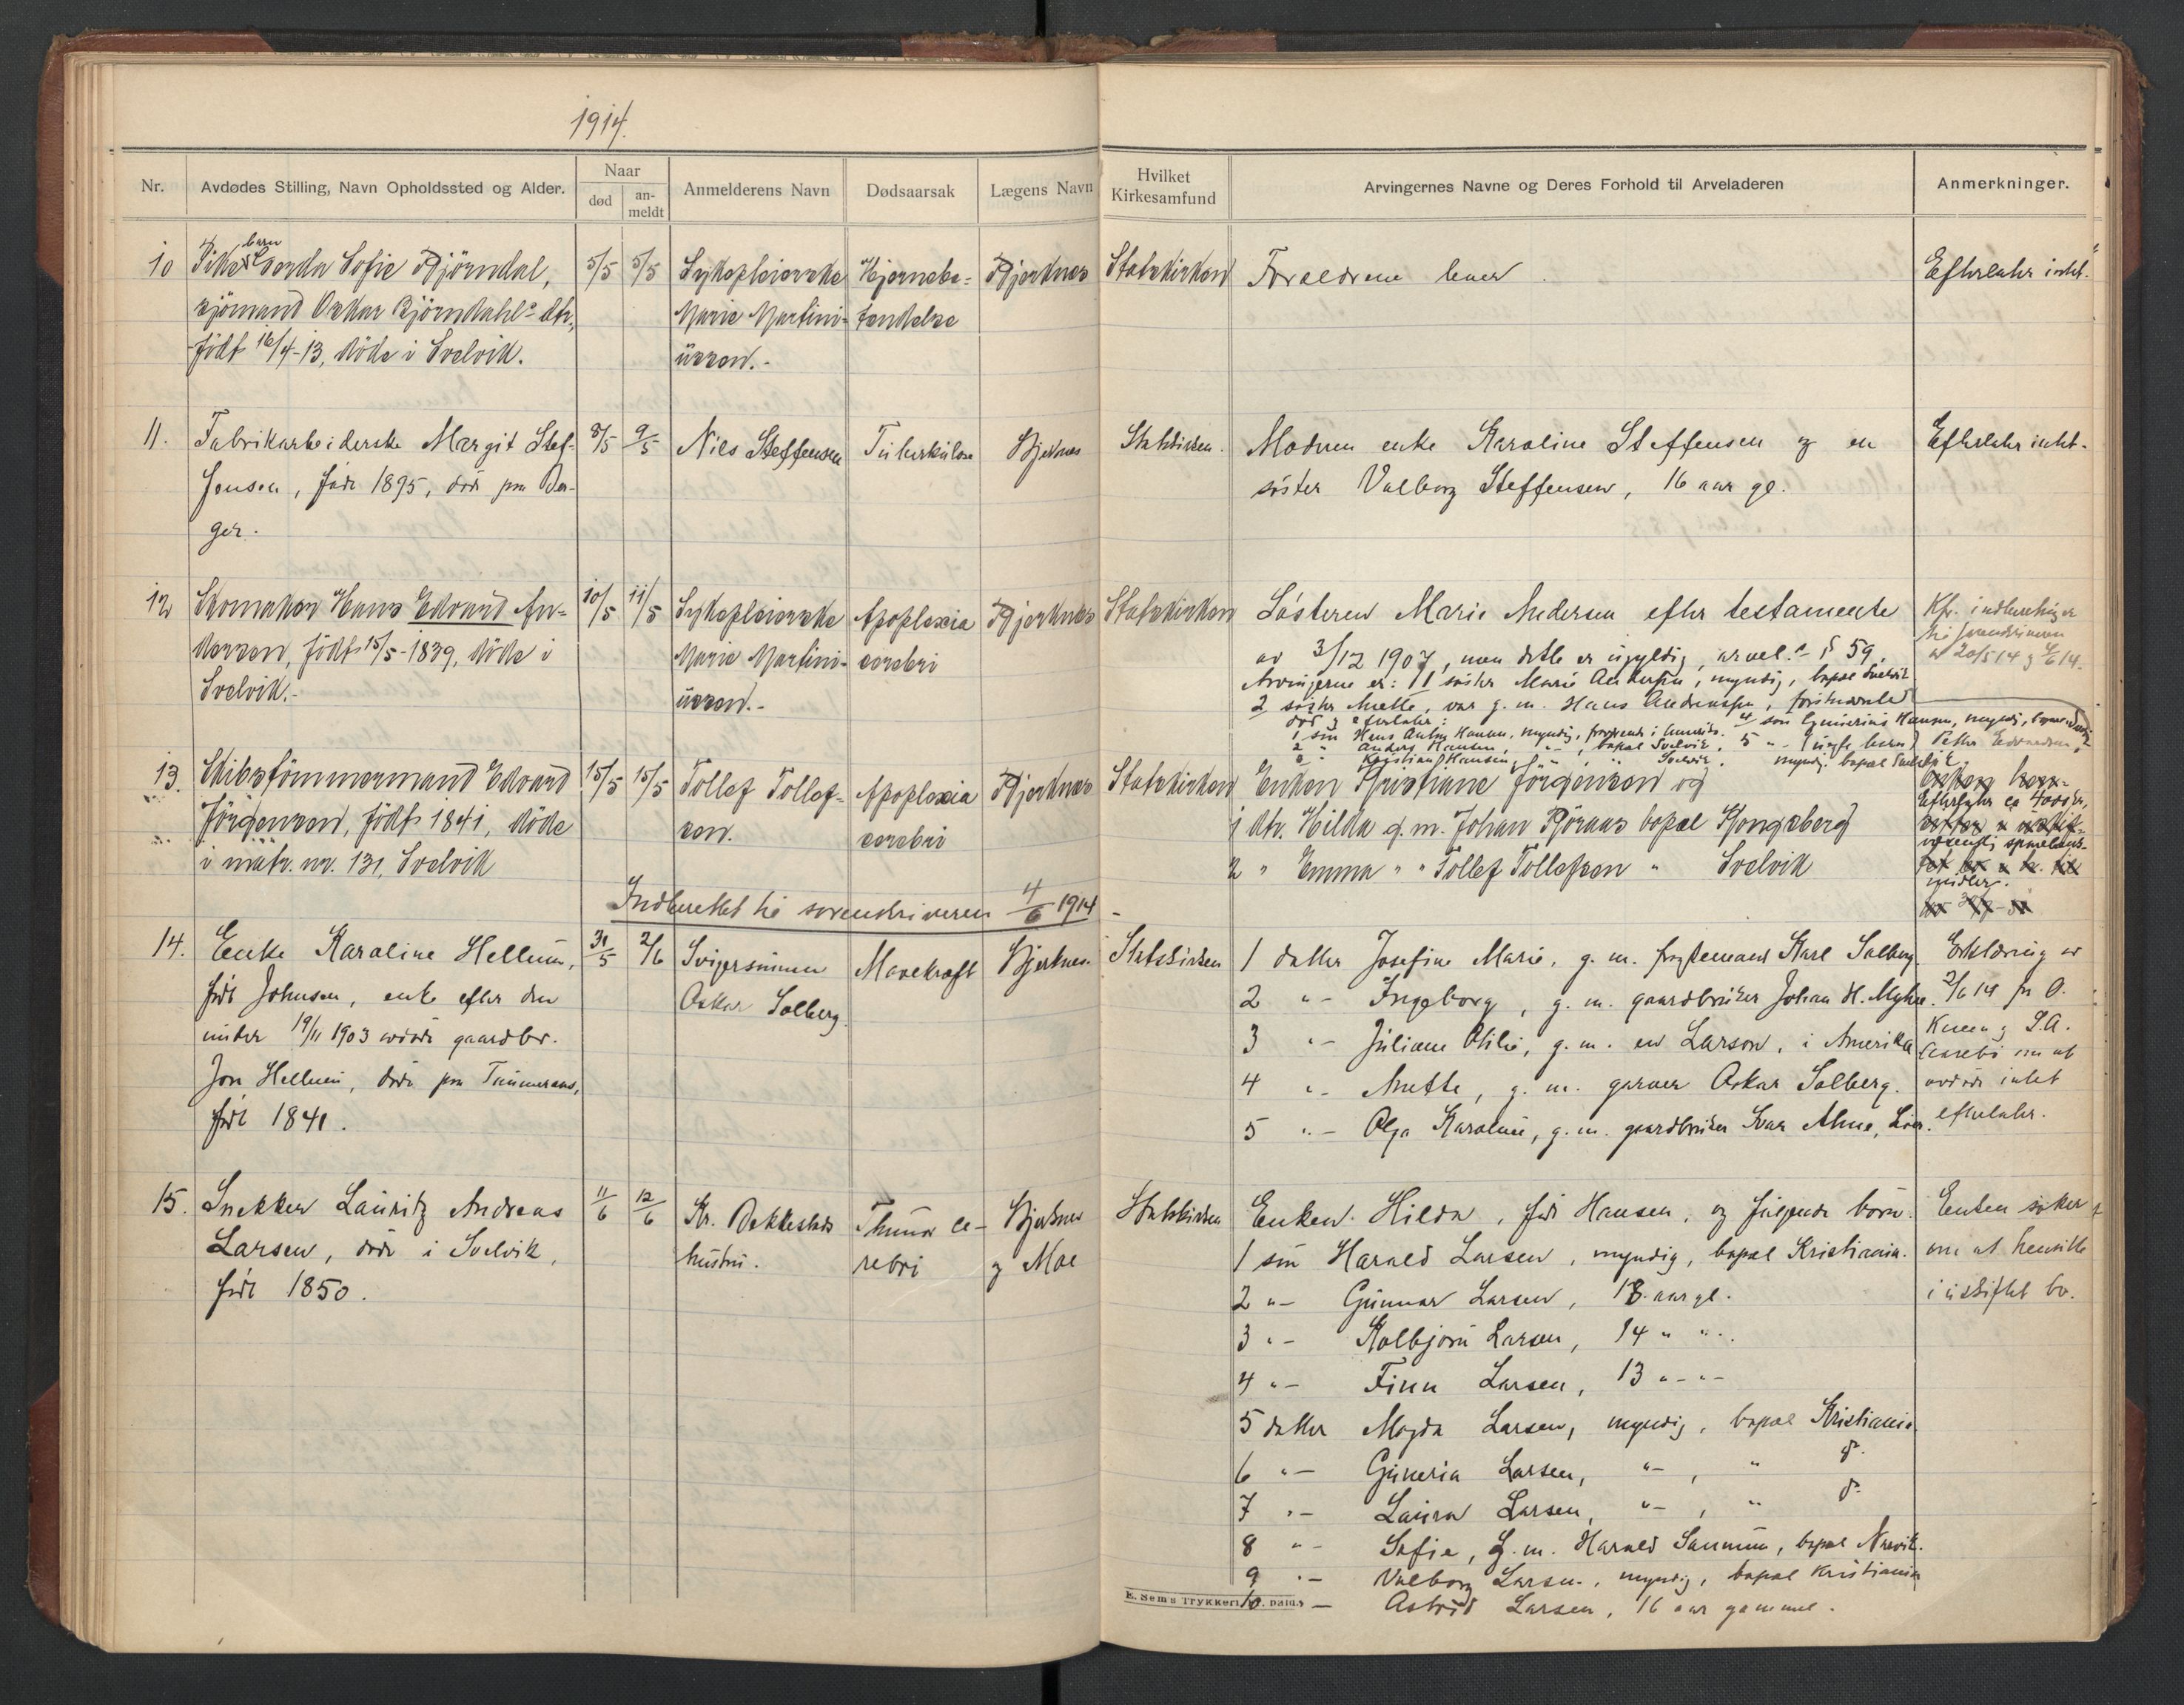 1914.
Nr.
Avdødes Stilling, Navn Opholdssted og Alder.
Naar
død
an-
meldt
Anmelderens Navn
Dødsaarsak
Lægens Navn
Hvilket
Kirkesamfund
Arvingernes Navne og Deres Forhold til Arveladeren
Anmerkninger.
10
barn
Pike Gerda Sofie Björndal,
sjömand Oskar Björndahls dtr.,
født 16/4-13, döde i Svelvik.
5/5
5/5
Sykepleierske
Marie Martini-
ussen.-
Hjernebe-
tendelse
Bjerknes
Statskirken
Forældrene lever.
Efterlater intet.
11.
Fabrikarbeiderske Margit Stef-
fensen, født 1895, död paa Ber-
ger.
8/5
9/5
Nils Steffensen
Tuberkulose
Bjerknes
Statskirken.
Modren enke Karoline Steffensen og en
söster Valborg Steffensen, 16 aar gl.
Efterlater intet.
12
Skomaker Hans Edvard An-
dersen, födt 15/5-1839, döde i
Svelvik.-
10/5
11/5
Sykepleierske
Marie Martini-
ussen.-
Apoplexia
cerebri
Bjerknes
Statskirken
Sösteren Marie Andersen efter testamente
av 3/12 1907, men dette er ugyldig, arvel.s § 59.
Arvingerne er: 1 söster Marie Andersen, myndig, bopæl Svelvik
2 söster Anette, var g. m. Hans Andreassen,
död & efterlater:
1 sön Hans Anton Hansen, myndig,
2 " Anders Hansen, " , bopæl Svelvik.
3 " Kristian Hansen, " , " Svelvik.
Kfr. indberetninger
til sorenskriveren
av 20/5 14 & 4/6 14.
13.
Skibstömmermand Edvard
Jörgensen, födt 1841, döde
i matr. nr. 131, Svelvik
15/5
15/5
Tollef Tollef-
sen.
Apoplexia
cerebri
Bjerknes
Statskirken
Enken Kristiane Jörgensen og
1 dtr. Hilda g. m. Johan Pjöraas bopæl Kongsberg
2 " Emma " " Tollef Tollefsen " Svelvik
Efterlater ca 4000 kr.,
midler.
Indberettet til sorenskriveren 4/6 1914
14.
Enke Karoline Hellum,
född Johnsen, enke efter den
under 19/11 1903 avdøde gaardbr.
Jon Hellum, døde paa Tømmeraas,
født 1841.
31/5
2/6
Svigersönnen
Oskar Solberg.
Mavekræft
Bjerknes.
Statskirken
1 datter Josefine Marie, g. m. Karl Solberg.
2 " - Ingeborg, g. m. gaardbruker Johan H. Myhre.
3 " - Juliane Otilie, g. m. en Larson, i Amerika
4 " - Anette, g. m. garver Oskar Solberg.
5 " - Olga Karoline, g. m. gaardbruker Ivar Alme, Lier.
Erklæring av
2/6 14 fra O.
avdøde intet
efterlater.
15.
Snekker Lauritz Andreas
Larsen, døde i Svelvik,
født 1850.
11/6
12/6
Kr. Dekkestads
hustru.
Thumor ce-
rebri
Bjerknes
& Moe
Statskirken
Enken Hilda, född Hansen, og følgende börn.
1 sön Harald Larsen, myndig, bopæl Kristiania.
2 " - Gunnar Larsen, 18 aar gl.
3 " - Kolbjörn Larsen, 14 " " .
4 " - Finn Larsen, 13 " - " -
5 datter Magda Larsen, myndig, bopæl Kristiania.
6 " - Guneria Larsen, " - , " do.
7 " - Laura Larsen, " - , " do.
8 " - Sofie, g. m. Harald Sannum, bopæl Narvik.
9 " - Valborg Larsen, myndig, bopæl Kristiania
10 " - Astrid Larsen, 16 aar gammel.
Enken søker
om at hensitte
i uskiftet bo.
E. Sems Trykkeri,